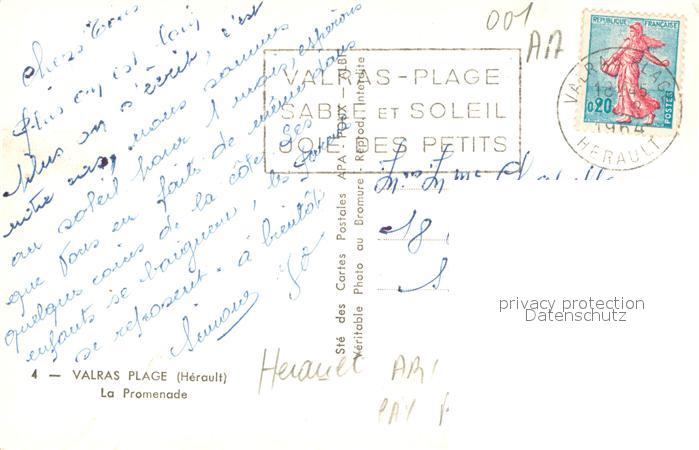 Chers Tous
Plus on est loin
plus on s'écrit, c'est
notre cas, nous sommes
au soleil pour 1 mois, espérons
que Vous en faits de même dans
quelques coins de la côte. Les
enfants se baignent, les
se reposent. à bientôt
Simone
4 — VALRAS PLAGE (Hérault)
La Promenade
Sté des Cartes Postales APA - POUX - ALBI
Véritable Photo au Bromure - Reprod. Interdite
VALRAS-PLAGE
SABLE ET SOLEIL
JOIE DES PETITS
001
AA
REPUBLIQUE FRANÇAISE
0,20
POSTES
VALRAS-PLAGE
18
1964
HERAULT
18
privacy protection
Datenschutz
Herault